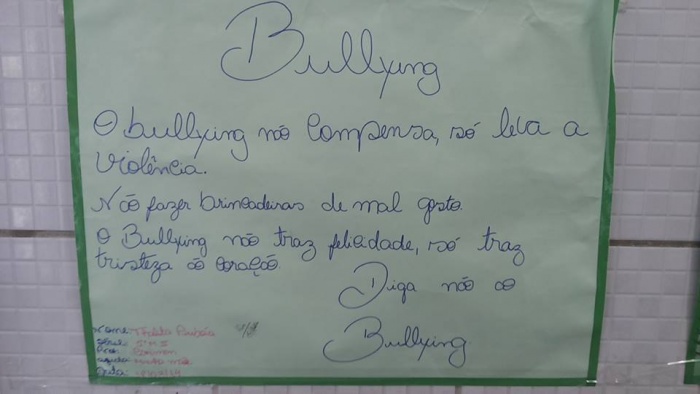 Bullxing
O bullxing não compensa, só leva a
violência.
Não fazer brincadeiras de mal gosto.
O Bullxing não traz felicidade, só traz
tristeza ao coração
Diga não ao
Bullxing
Nome: